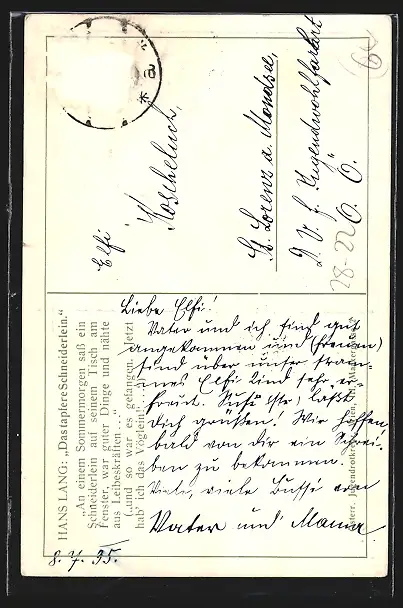 HANS LANG: „Das tapfere Schneiderlein."
„An einem Sommermorgen saß ein
Schneiderlein auf seinem Tisch am
Fenster, war guter Dinge und nähte
aus Leibeskräften..."
(„und so war es gefangen. Jetzt
hab' ich das Vöglein
Liebe Elfi!
Vater und ich sind gut
angekommen und (freuen)
sind über unser
Elfi Kind sehr er-
freut. laßt
dich grüßen! Wir hoffen
bald von dir ein Schrei-
ben zu bekommen.
Viele, viele Bussi von
Vater und Mama
8. 7. 35.
Elfi
Koscheluch,
St. Lorenz a. Mondsee,
D. V. f. Jugendwohlfahrt
O. Ö.
28-22